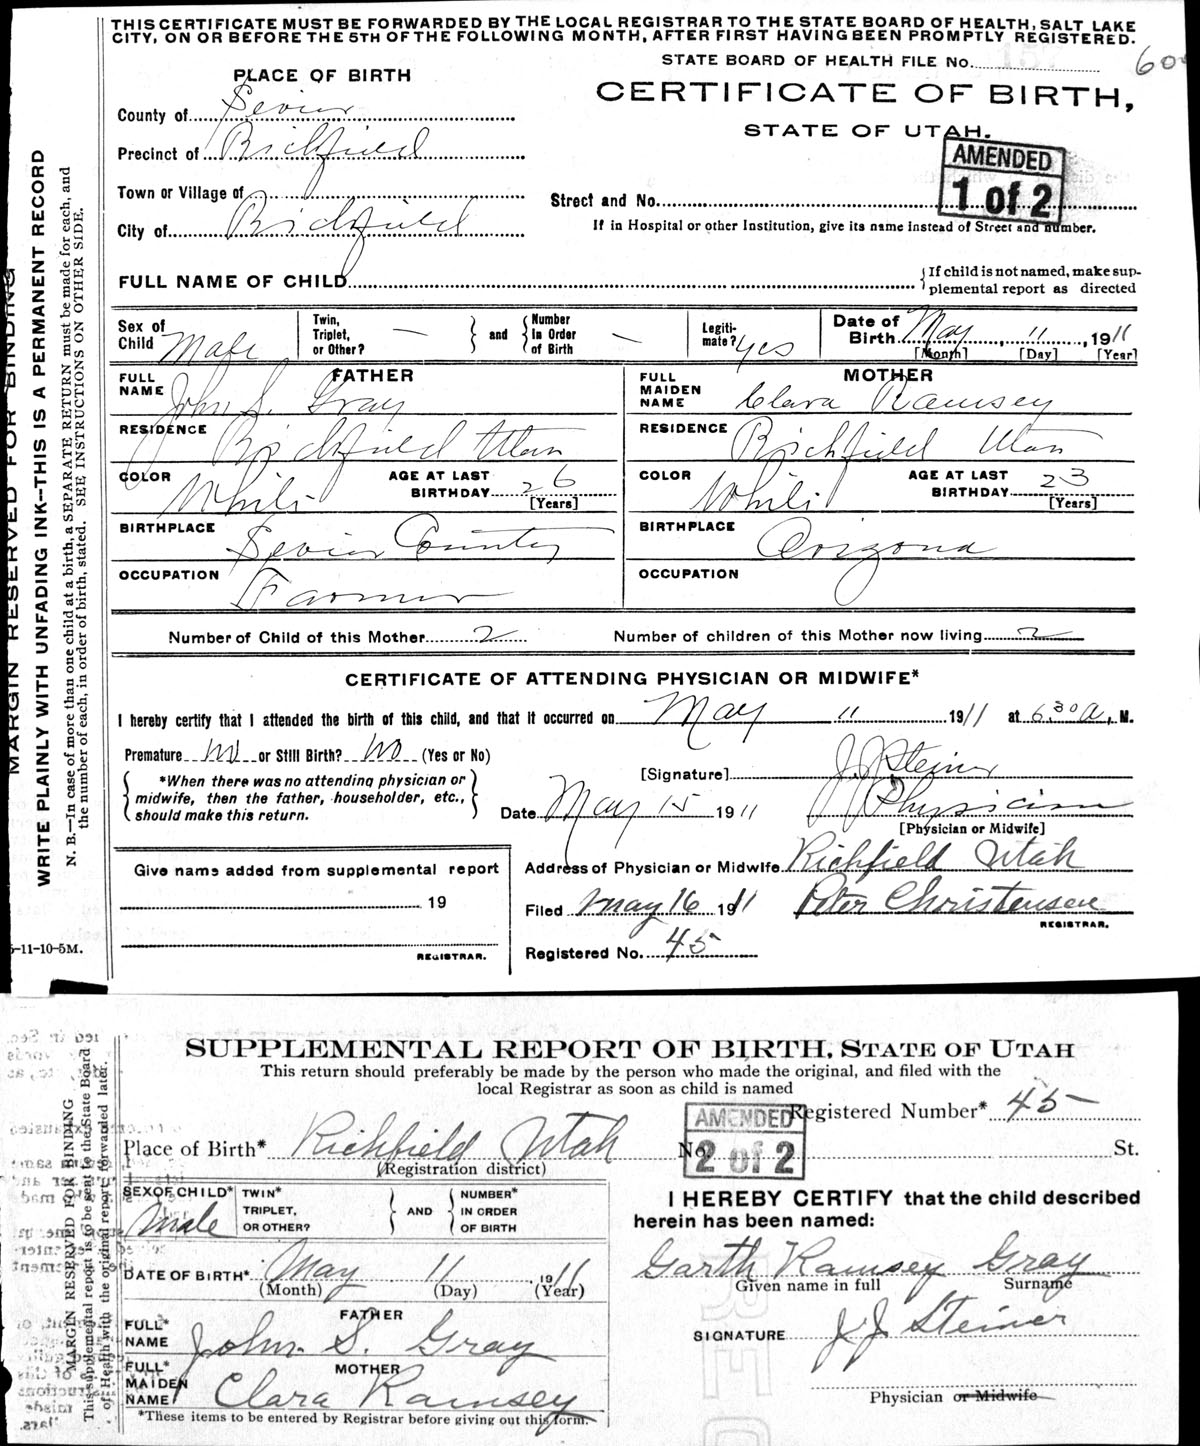 THIS CERTIFICATE MUST BE FORWARDED BY THE LOCAL REGISTRAR TO THE STATE BOARD OF HEALTH, SALT LAKE
CITY, ON OR BEFORE THE 5TH OF THE FOLLOWING MONTH, AFTER FIRST HAVING BEEN PROMPTLY REGISTERED.
STATE BOARD OF HEALTH FILE No.
PLACE OF BIRTH
CERTIFICATE OF BIRTH,
STATE OF UTAH.
County of Sevier
Precinct of Richfield
AMENDED
1 of 2
Town or Village of
Street and No.
City of Richfield
If in Hospital or other Institution, give its name instead of Street and number.
FULL NAME OF CHILD
{If child is not named, make sup-
plemental report as directed
Sex of Child Male
Twin, Triplet, or Other? —
and
Number in Order of Birth —
Legiti-mate? yes
Date of Birth May 11 1911
[Month] [Day] [Year]
FATHER
FULL NAME John S. Gray
MOTHER
FULL MAIDEN NAME Clara Ramsey
RESIDENCE Richfield Utah
RESIDENCE Richfield Utah
COLOR White AGE AT LAST BIRTHDAY 26 [Years]
COLOR White AGE AT LAST BIRTHDAY 23 [Years]
BIRTHPLACE Sevier County
BIRTHPLACE Arizona
OCCUPATION Farmer
OCCUPATION
Number of Child of this Mother 2 Number of children of this Mother now living 2
CERTIFICATE OF ATTENDING PHYSICIAN OR MIDWIFE*
I hereby certify that I attended the birth of this child, and that it occurred on May 11 1911 at 6.30 a, M.
Premature No or Still Birth? No (Yes or No)
*When there was no attending physician or
midwife, then the father, householder, etc.,
should make this return.
[Signature] J. J. Steiner
Date May 15 1911 Physician
[Physician or Midwife]
Address of Physician or Midwife Richfield Utah
Filed May 16 1911 Peter Christensen
REGISTRAR.
Registered No. 45
Give name added from supplemental report
19
REGISTRAR.
5-11-10-5M.
MARGIN RESERVED FOR BINDING
WRITE PLAINLY WITH UNFADING INK--THIS IS A PERMANENT RECORD
N. B.—In case of more than one child at a birth, a SEPARATE RETURN must be made for each, and
the number of each, in order of birth, stated. SEE INSTRUCTIONS ON OTHER SIDE.
SUPPLEMENTAL REPORT OF BIRTH, STATE OF UTAH
This return should preferably be made by the person who made the original, and filed with the
local Registrar as soon as child is named
AMENDED
2 of 2
Registered Number* 45
Place of Birth* Richfield Utah No. St.
(Registration district)
SEX OF CHILD* Male
TWIN* TRIPLET, OR OTHER?
AND
NUMBER* IN ORDER OF BIRTH
I HEREBY CERTIFY that the child described
herein has been named:
DATE OF BIRTH* May 11 1911
(Month) (Day) (Year)
Garth Ramsey Gray
Given name in full Surname
FATHER
FULL* NAME John S. Gray
SIGNATURE J J Steiner
MOTHER
FULL* MAIDEN NAME Clara Ramsey
Physician or Midwife
*These items to be entered by Registrar before giving out this form.
MARGIN RESERVED FOR BINDING
This supplemental report is to be sent to the State Board
of Health with the original report forwarded later.